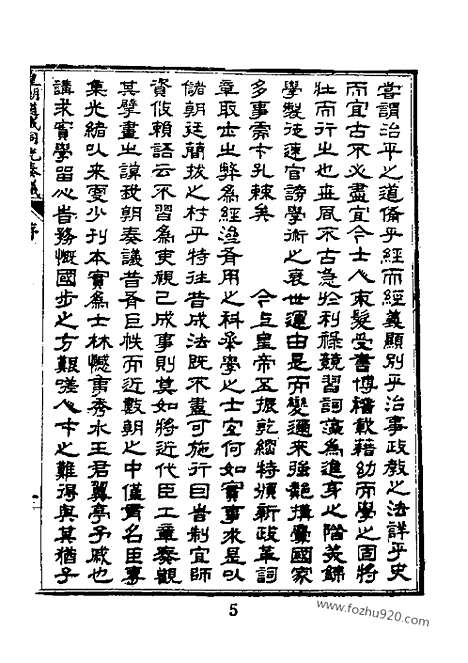 嘗謂治平之道備乎經而經義顯別乎治事政教之法詳乎史
而宜古不必盡宜今士人束髮受書博稽載籍幼而學之固將
壯而行之也世風不古急於利祿競習詞藻為進身之階英錦
學製徒速官謗學術之衰世運由是而變邇來強艷搆釁國家
多事需才孔棘矣 今上皇帝丕振乾綱特頒新政革詞
章取士之弊為經濟有用之科承學之士宜何如實事求是以
儲朝廷簡拔之材乎特往昔成法既不盡可施行因皆制宜師
資攸賴語云不習為吏視已成事則莫如將近代臣工章奏觀
其擘畫之謨我朝奏議昔有巨帙而近數朝之中僅有名臣專
集光緒以來更少刊本實為士林憾事秀水王君翼亭子戚也
講求實學留心皆務慨國步之方艱嗟人才之難得與其猶子
皇朝道咸同光奏議 序
5
www.fozhu920.com